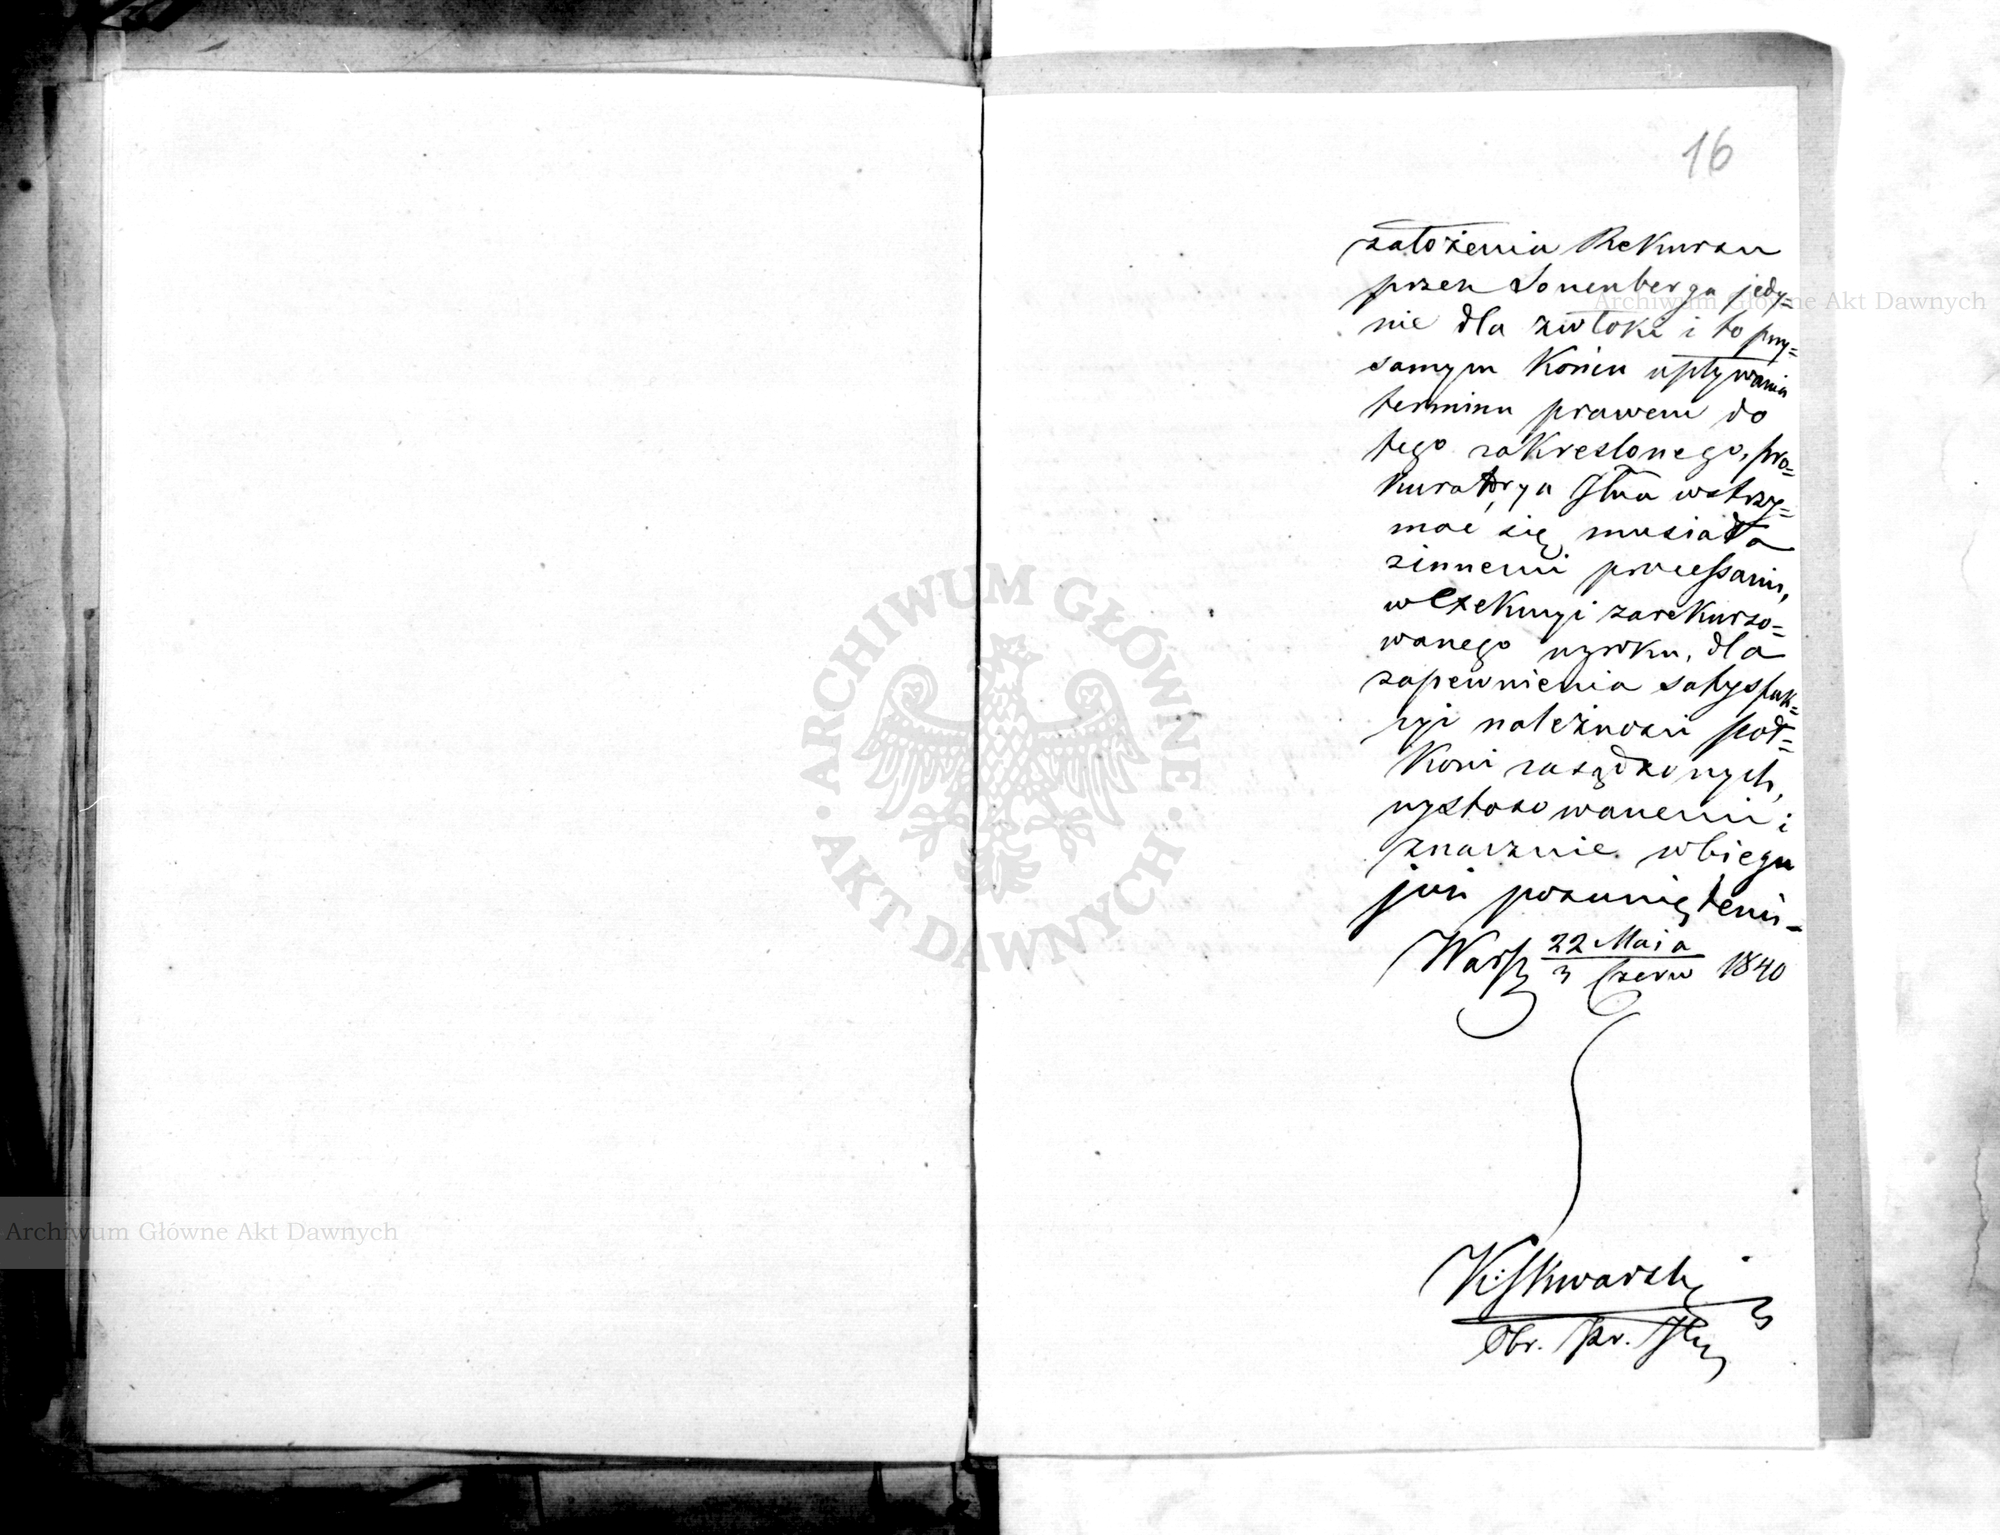 16
założenia Rekursu
przez Sonenberga jedy=
nie dla zwłoki i to przy=
samym Końcu upływania
terminu prawem do
tego zakreslonego, pro=
kuratorya Jłna wstrzy=
mać się musiała
zinnemi processami,
w Exekucyi zarekurso=
wanego wyroku, dla
zapewnienia satysfak=
cyi należności Pod=
Koni zasądzonych,
wystosowanemi i
znacznie wbiegu
już posuniętemi
Warsz 22 Maia
3 Czerw 1840
K: Skwarski
Obr. Pr.
Archiwum Główne Akt Dawnych
ARCHIWUM GŁÓWNE · AKT DAWNYCH ·
Archiwum Główne Akt Dawnych